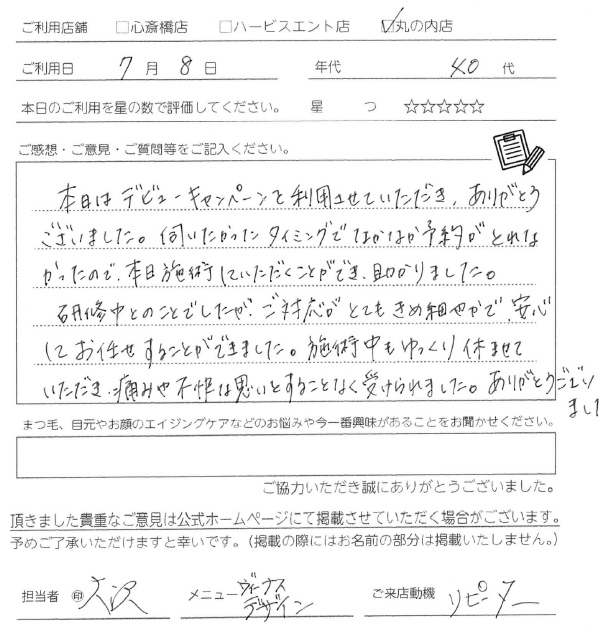 ご利用店舗 □心斎橋店 □ハービスエント店 ☑丸の内店
ご利用日 7月8日 年代 40代
本日のご利用を星の数で評価してください。 星 つ ☆☆☆☆☆
ご感想・ご意見・ご質問等をご記入ください。
本日はデビューキャンペーンを利用させていただき、ありがとう
ございました。伺いたかったタイミングでなかなか予約がとれな
かったので、本日施術していただくことができ、助かりました。
研修中とのことでしたが、ご対応がとてもきめ細やかで、安心
してお任せすることができました。施術中もゆっくり休ませて
いただき、痛みや不快な思いをすることなく受けられました。ありがとうござい
まし
まつ毛、目元やお顔のエイジングケアなどのお悩みや今一番興味があることをお聞かせください。
ご協力いただき誠にありがとうございました。
頂きました貴重なご意見は公式ホームページにて掲載させていただく場合がございます。
予めご了承いただけますと幸いです。（掲載の際にはお名前の部分は掲載いたしません。）
担当者 ㊞ 大沢 メニュー ヴィーナスデザイン ご来店動機 リピーター